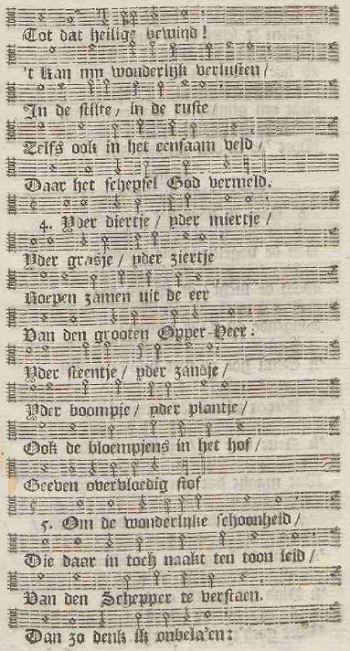 Tot dat heilige bewind!
't Kan myn wonderlijk verlusten/
In de stilte/ in de ruste/
Telfs ook in het eensaam veld/
Daar het schepsel God vermeld.
4. Yder diertje/ yder miertje/
Yder grasje/ yder ziertje
Roepen zamen uit de eer
Van den grooten Opper-Heer:
Yder steentje/ yder zandje/
Yder boompje/ yder plantje/
Ook de bloempjens in het hof/
Geeven overvloedig stof
5. Om de wonderlijke schoonheid/
Die daar in toch naakt ten toon leid/
Van den Schepper te verstaen.
Dan zo denk ik onbela'en: